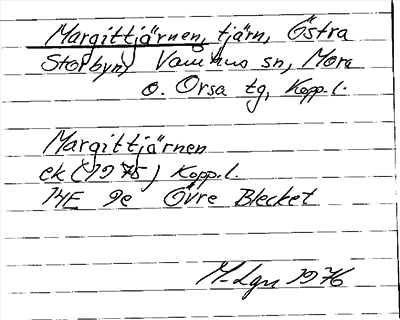 Margittjärnen, tjärn, Östra
Storbyn, Våmhus sn, Mora
o. Orsa tg, Kopp.l.
Margittjärnen
ek (1975) Kopp.l.
14E 9e Övre Blecket
M-Lgn 1976